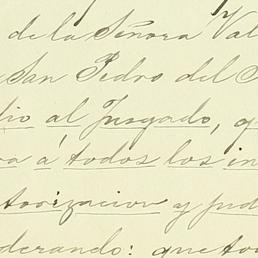 de la Señora Val
San Pedro del
dio al Juzgado, q
ra á todos los in
torizacion y jud
derando: que to